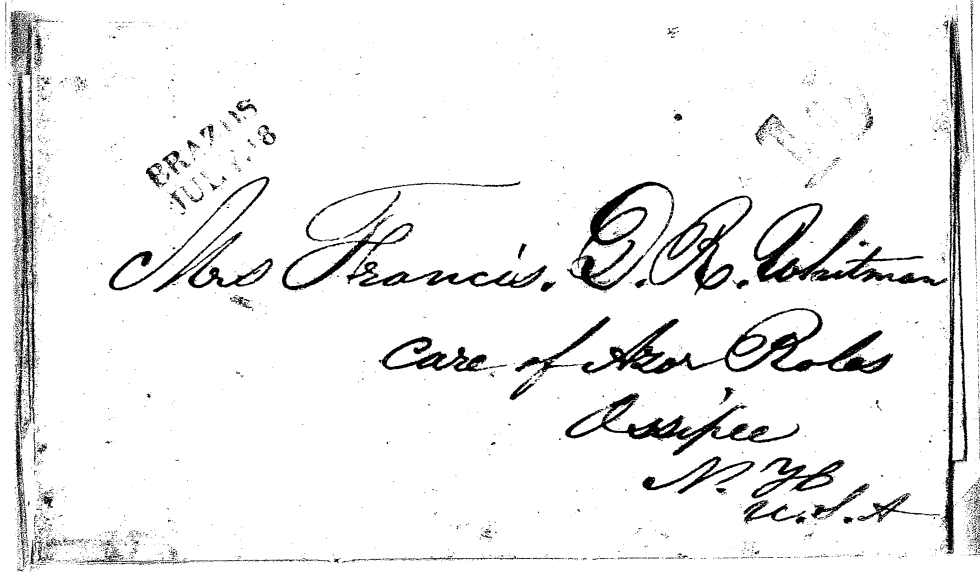 BRAZOS
JUL. 7. 18
10
Mrs Francis. D. R. Whitman
Care of Azor Roles
Ossipee
N. H
U. S. A